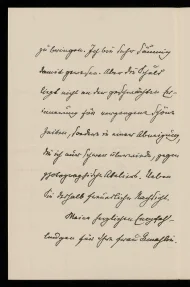 zu bringen. Ich bin sehr säumig
damit gewesen. Aber die Schuld
liegt nicht an der geschwächten Er-
innerung für vergangene schöne
Zeiten, sondern in einer Abneigung,
die ich nur schwer überwinde, gegen
photographische Ateliers. Ueben
Sie deshalb freundliche Nachsicht.
Meine herzlichen Empfeh-
lungen für Ihre Frau Gemahlin.